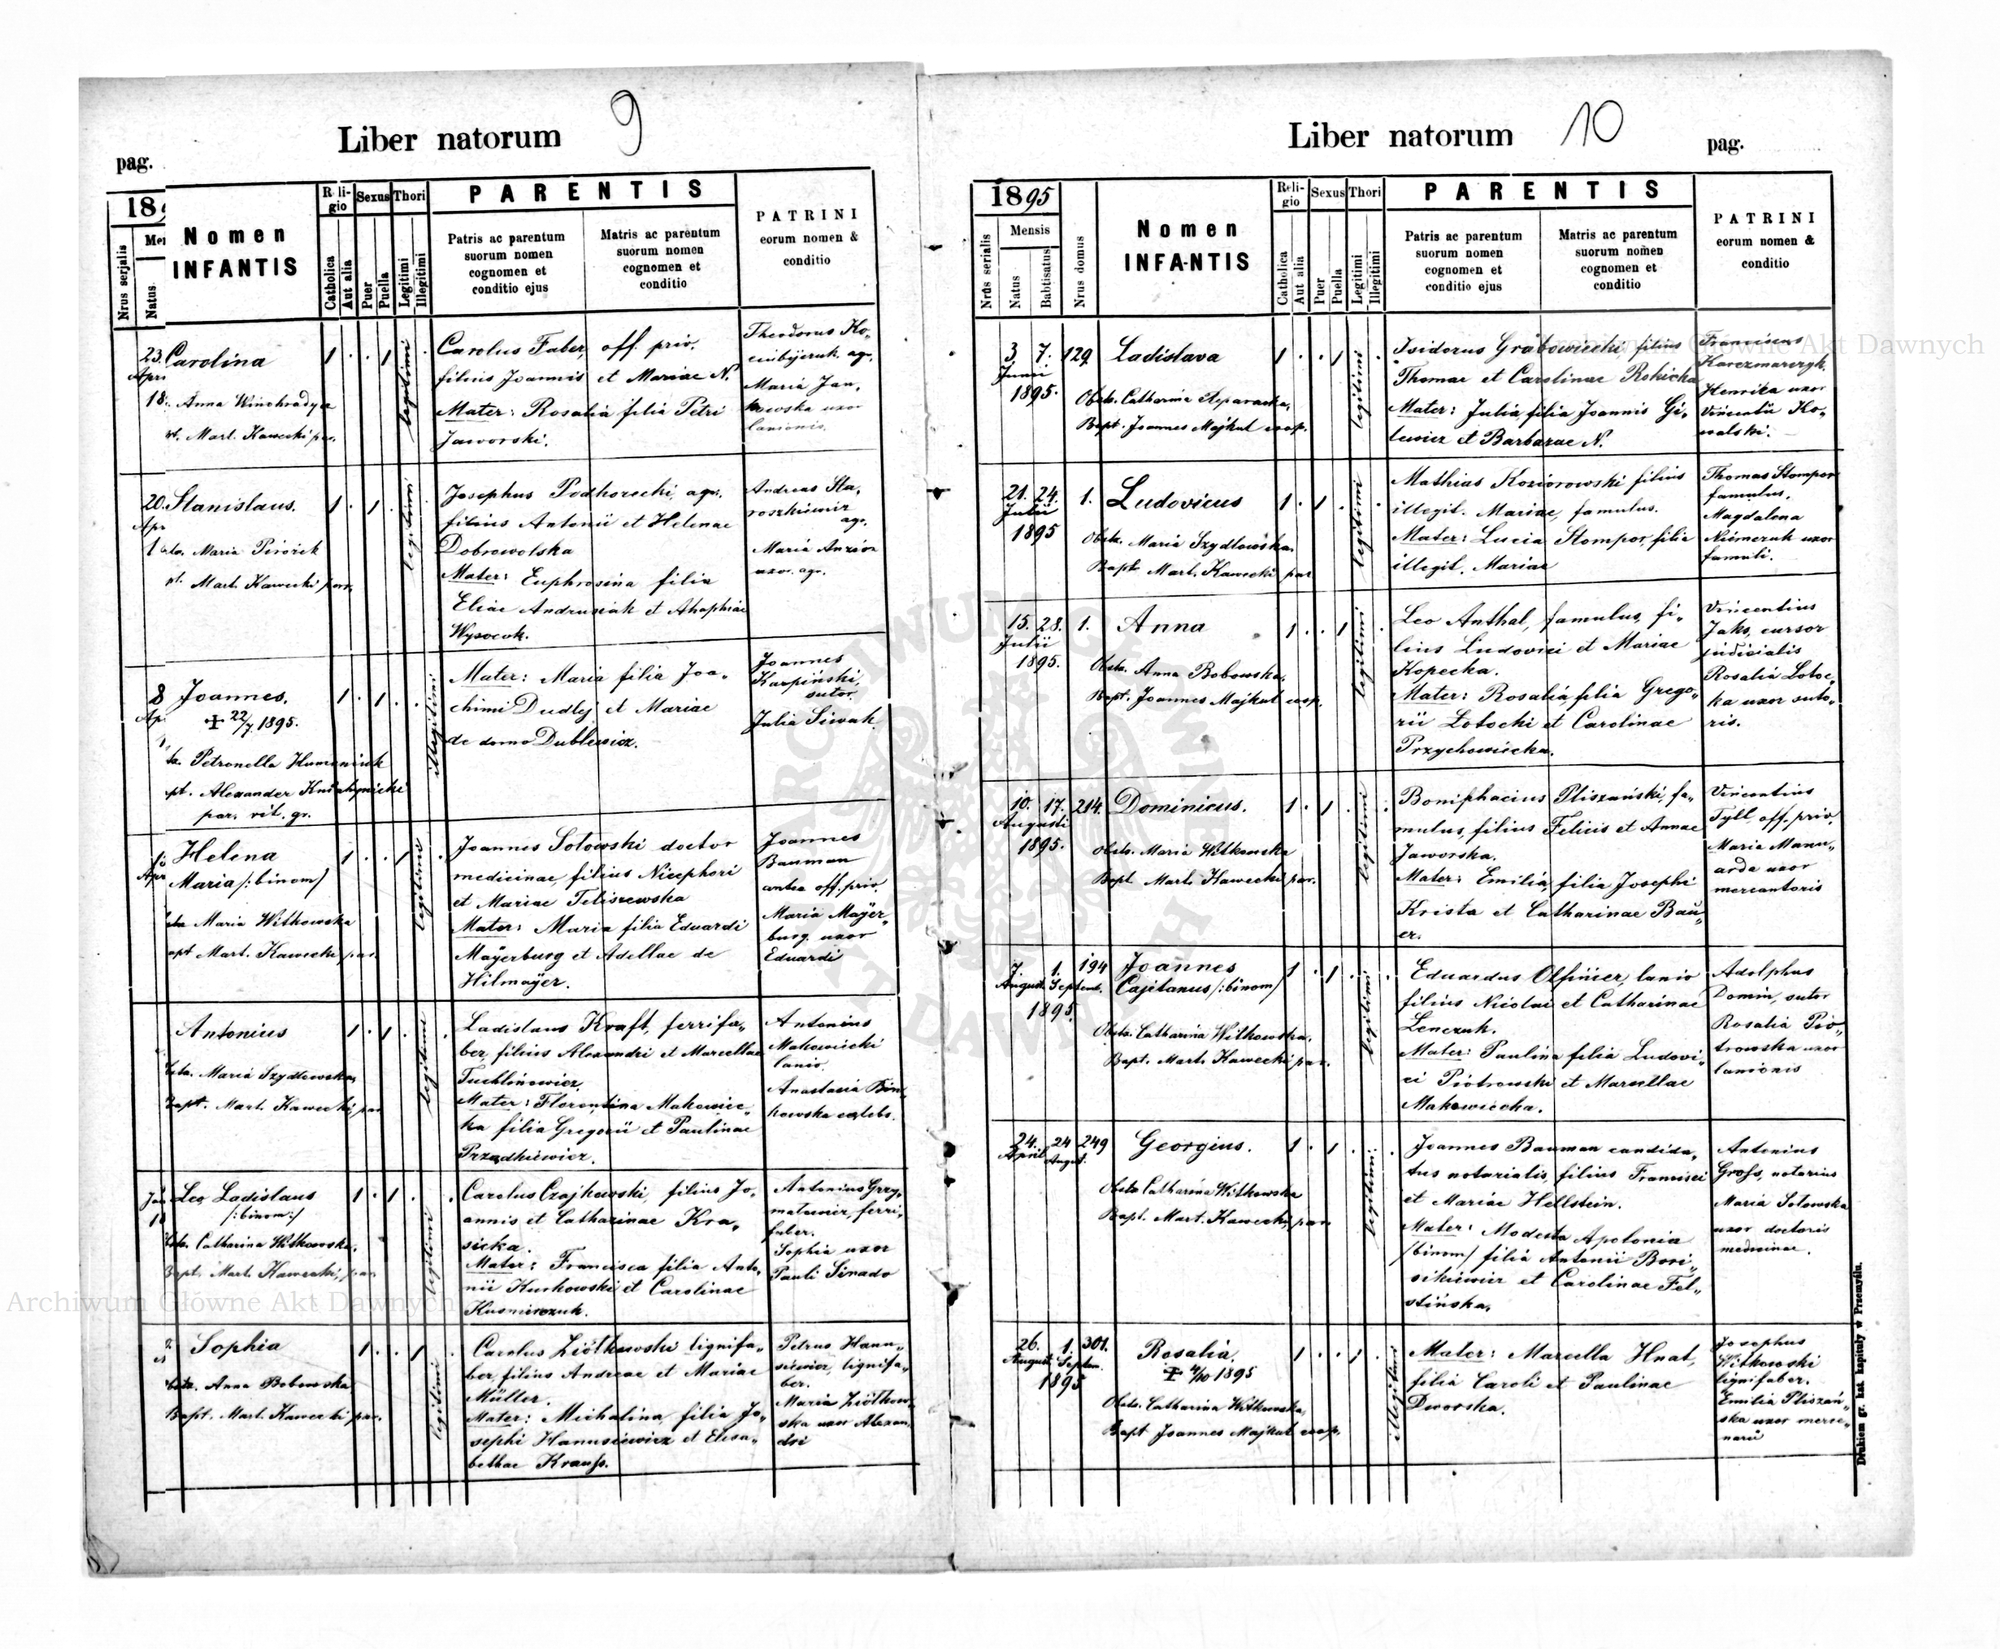 Liber natorum
9
pag.
18
Nrus serialis
Natus
Nomen
INFANTIS
Religio
Catholica
Aut alia
Sexus
Puer
Puella
Thori
Legitimi
Illegitimi
PARENTIS
Patris ac parentum
suorum nomen
cognomen et
conditio ejus
Matris ac parentum
suorum nomen
cognomen et
conditio
PATRINI
eorum nomen &
conditio
23.
18
Carolina
Anna Winohradya
Mart. Kawecki par.
1 . . 1
legitimi
Carolus Faber, off. priv.
filius Joannis et Mariae N.
Mater: Rosalia filia Petri
Jaworski.
Theodorus Ko-
ag.
Maria Jan-
kowska uxor
lanionis.
20.
Stanislaus.
Maria Pirożek
Mart. Kawecki par.
1 . 1 .
legitimi
Josephus Podhorecki, agr.
filius Antonii et Helenae
Dobrowolska
Mater: Euphrosina filia
Eliae Andrusiak et Ahaphiae
Wysocok.
Andreas Sta-
roszkiewicz
agr.
Maria
uxor. agr.
8
Joannes.
+ 22/7 1895.
Petronella Humeniuk
pt. Alexander
par. rit. gr.
1 . 1 .
illegitimi
Mater: Maria filia Joa-
chimi Dudlej et Mariae
de domo Dublewicz.
Joannes
Karpiński,
sutor
Julia Siwak
Helena
Maria /:binom/
Maria Witkowska
Mart. Kawecki par.
1 . . 1
legitimi
Joannes Sotowski doctor
medicinae, filius Nicephori
et Mariae Teliszewska
Mater: Maria filia Eduardi
Mäyerburg et Adellae de
Hilmaÿer.
Joannes
Bauman
off. priv.
Maria Maÿer-
burg. uxor
Eduardi
Antonius
Maria Szydlowska
Bapt. Mart. Kawecki par
1 . 1 .
legitimi
Ladislaus Kraft, ferrifa-
ber, filius Alexandri et Marcellae
Tuchlinowicz.
Mater: Florentina Makowiec-
ka filia Gregorii et Paulinae
Przedkiewicz.
Antonius
Makowiecki
lanio.
Anastasia Bin-
kowska
Leo Ladislaus
/:binom:/
Catharina Witkowska.
Bapt. Mart. Kawecki, par.
1 . 1 .
legitimi
Carolus Czajkowski, filius Jo-
annis et Catharinae Kra-
sicka.
Mater: Francisca filia Anto-
nii Kurkowski et Carolinae
Kusnierczuk.
Antonius Grzy-
malewicz, ferri-
faber.
Sophia uxor
Pauli Sinado
Sophia
Anna Bobowska
Bapt. Mart. Kawecki par.
1 . . 1
legitimi
Carolus Ziółkowski lignifa-
ber, filius Andreae et Mariae
Müller.
Mater: Michalina, filia Jo-
sephi Hanusiewicz et Elisa-
bethae Krauss.
Petrus Hanu-
siewicz, lignifa-
ber.
Maria Ziółkow-
ska uxor Alexan-
dri
Liber natorum
10
pag.
1895
Nrus serialis
Mensis
Natus
Babtisatus
Nrus domus
Nomen
INFANTIS
Religio
Catholica
Aut alia
Sexus
Puer
Puella
Thori
Legitimi
Illegitimi
PARENTIS
Patris ac parentum
suorum nomen
cognomen et
conditio ejus
Matris ac parentum
suorum nomen
cognomen et
conditio
PATRINI
eorum nomen &
conditio
3. 7. 129.
Junii
1895.
Ladislava
Obste. Catharina
Bapt. Joannes Majkut coop.
legitimi
Isidorus Grabowiecki, filius
Thomae et Carolinae Rokicka
Mater: Julia, filia Joannis Gi-
lewicz et Barbarae N.
Franciscus
Karczmarczyk.
Henrica uxor
Vincentii Ko-
walski.
21. 24. 1.
Julii
1895
Ludovicus
Obste. Maria Szydlowska.
Bapt. Mart. Kawecki par
1 . 1 .
legitimi
Mathias Koziorowski filius
illegit. Mariae, famulus.
Mater: Lucia Stompor, filia
illegit. Mariae
Thomas Stompor
famulus.
Magdalena
Niemczuk uxor
famuli.
15. 28. 1.
Julii
1895.
Anna
Obste. Anna Bobowska.
Bapt. Joannes Majkut coop.
1 . . 1
legitimi
Leo Anthal, famulus, fi-
lius Ludovici et Mariae
Kopecka.
Mater: Rosalia, filia Grego-
rii Lotocki et Carolinae
Przychowiecka.
Vincentius
Jaks, cursor
judicialis
Rosalia Lotoc-
ka uxor suto-
ris.
10. 17. 214.
Augusti
1895.
Dominicus.
Obste. Maria Witkowska
Bapt. Mart. Kawecki par.
1 . 1 .
legitimi
Boniphacius Pliszański, fa-
mulus, filius Felicis et Annae
Jaworska.
Mater: Emilia, filia Josephi
Krista et Catharinae Bau-
er.
Vincentius
Tyll off. priv.
Maria Manu-
arda uxor
mercatoris
7. 1. 194
August. Septemb.
1895.
Joannes
Cajetanus /:binom/
Obste. Catharina Witkowska.
Bapt. Mart. Kawecki par.
1 . 1 .
legitimi
Eduardus Olfinier, lanio
filius Nicolai et Catharinae
Lenczuk.
Mater: Paulina filia Ludovi-
ci Piotrowski et Marcellae
Makowiecka.
Adolphus
Domin, sutor
Rosalia Pio-
trowska uxor
lanionis
24. 24 249
April. August.
Georgius.
Obste Catharina Witkowska
Bapt. Mart. Kawecki, par.
1 . 1 .
legitimi
Joannes Bauman candida-
tus notarialis, filius Francisci
et Mariae Hellstein.
Mater: Modesta Apolonia
/binom/ filia Antonii Bori-
sikiewicz et Carolinae Fel-
stińska.
Antonius
Gross, notarius
Maria Sotowska
uxor doctoris
medicinae.
26. 1. 301.
August. Septem.
1895
Rosalia.
+ 4/10 1895
Obste. Catharina Witkowska,
Bapt Joannes Majkut coop.
1 . . 1
illegitimi
Mater: Marcella Hnat,
filia Caroli et Paulinae
Dworska.
Josephus
Witkowski
lignifaber.
Emilia Pliszań-
ska uxor merce-
narii
Drukiem gr. kat. kapituły w Przemyślu.
Archiwum Główne Akt Dawnych
Archiwum Główne Akt Dawnych
ARCHIWUM GŁÓWNE AKT DAWNYCH